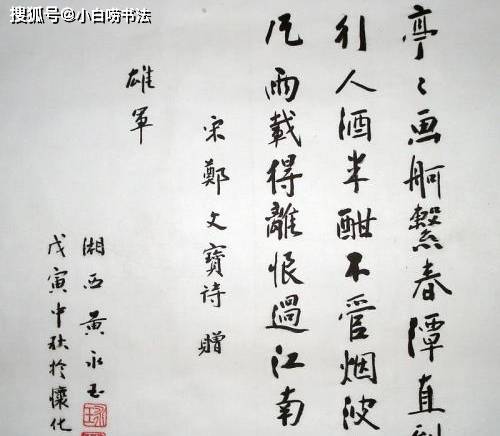 搜狐号@小白唠书法
亭〻画舸繫春潭直到
行人酒半酣不管烟波
风雨載得離恨過江南
宋鄭文寶诗贈
雄軍
湘西黄永玉
戊寅中秋於懷化